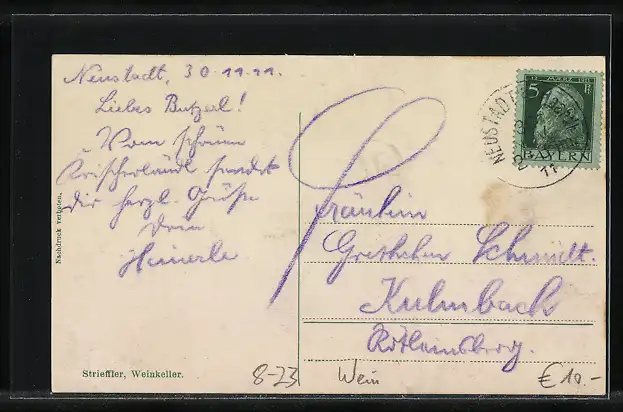 Neustadt, 30.11.11.
Liebes Butzerl!
Vom schönen
sendet
Dir herzl. Grüße
Dein
Heinerle
Nachdruck verboten.
Strieffler, Weinkeller.
NEUSTADT
5 MARZ 1911
5 Pf
BAYERN
Fräulein
Gretchen Schmidt.
Kulmbach
8-23
Wein
€ 10.-